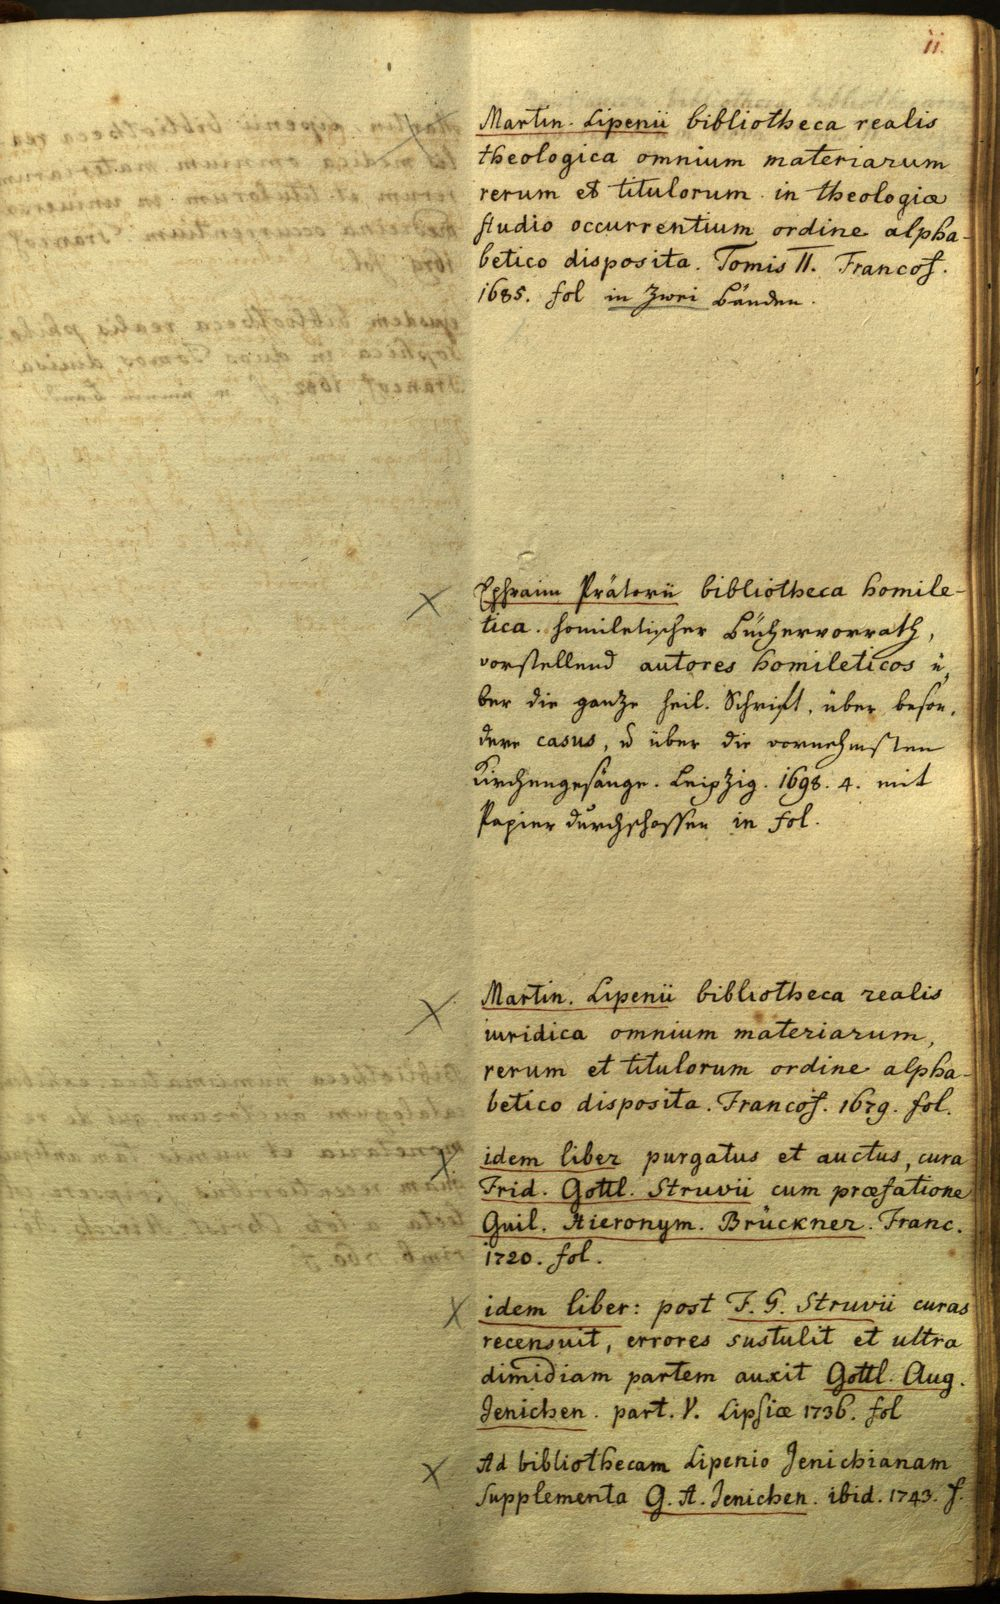 11.
Martin. Lipenii bibliotheca realis
theologica omnium materiarum
rerum et titulorum in theologiæ
studio occurrentium ordine alpha-
betico disposita. Tomis II. Francof.
1685. fol in zwei Bänden.
Ephraim Prätorii bibliotheca homile-
tica. homiletischer Büchervorrath,
vorstellend autores homileticos ü-
ber die gantze heil. Schrift, über beson-
dere casus, u über die vornehmsten
Kirchengesänge. Leipzig. 1698. 4. mit
Papier durchschossen in fol.
Martin. Lipenii bibliotheca realis
iuridica omnium materiarum,
rerum et titulorum ordine alpha-
betico disposita. Francof. 1679. fol.
idem liber purgatus et auctus, cura
Frid. Gottl. Struvii cum præfatione
Guil. Hieronym. Brückner. Franc.
1720. fol.
idem liber: post F. G. Struvii curas
recensuit, errores sustulit et ultra
dimidiam partem auxit Gottl. Aug.
Jenichen. part. V. Lipsiæ 1736. fol
Ad bibliothecam Lipenio Jenichianam
Supplementa G. A. Jenichen. ibid. 1743. f.